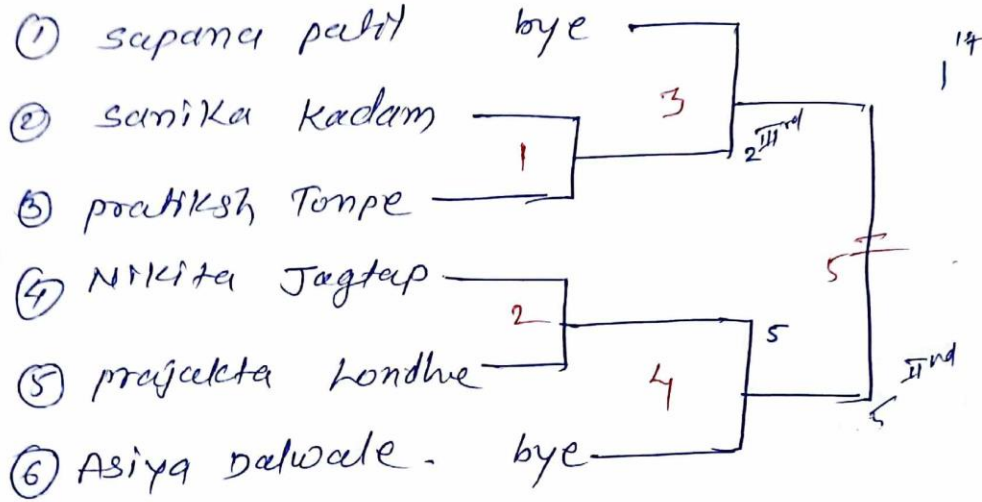 ① sapana patil bye
② sanika Kadam
③ pratiksh Tonpe
④ Nikita Jagtap
⑤ prajakta Londhe
⑥ Asiya Dalwale. bye
1
2
3
4
5
2 IIIrd
5
5 IInd
1st